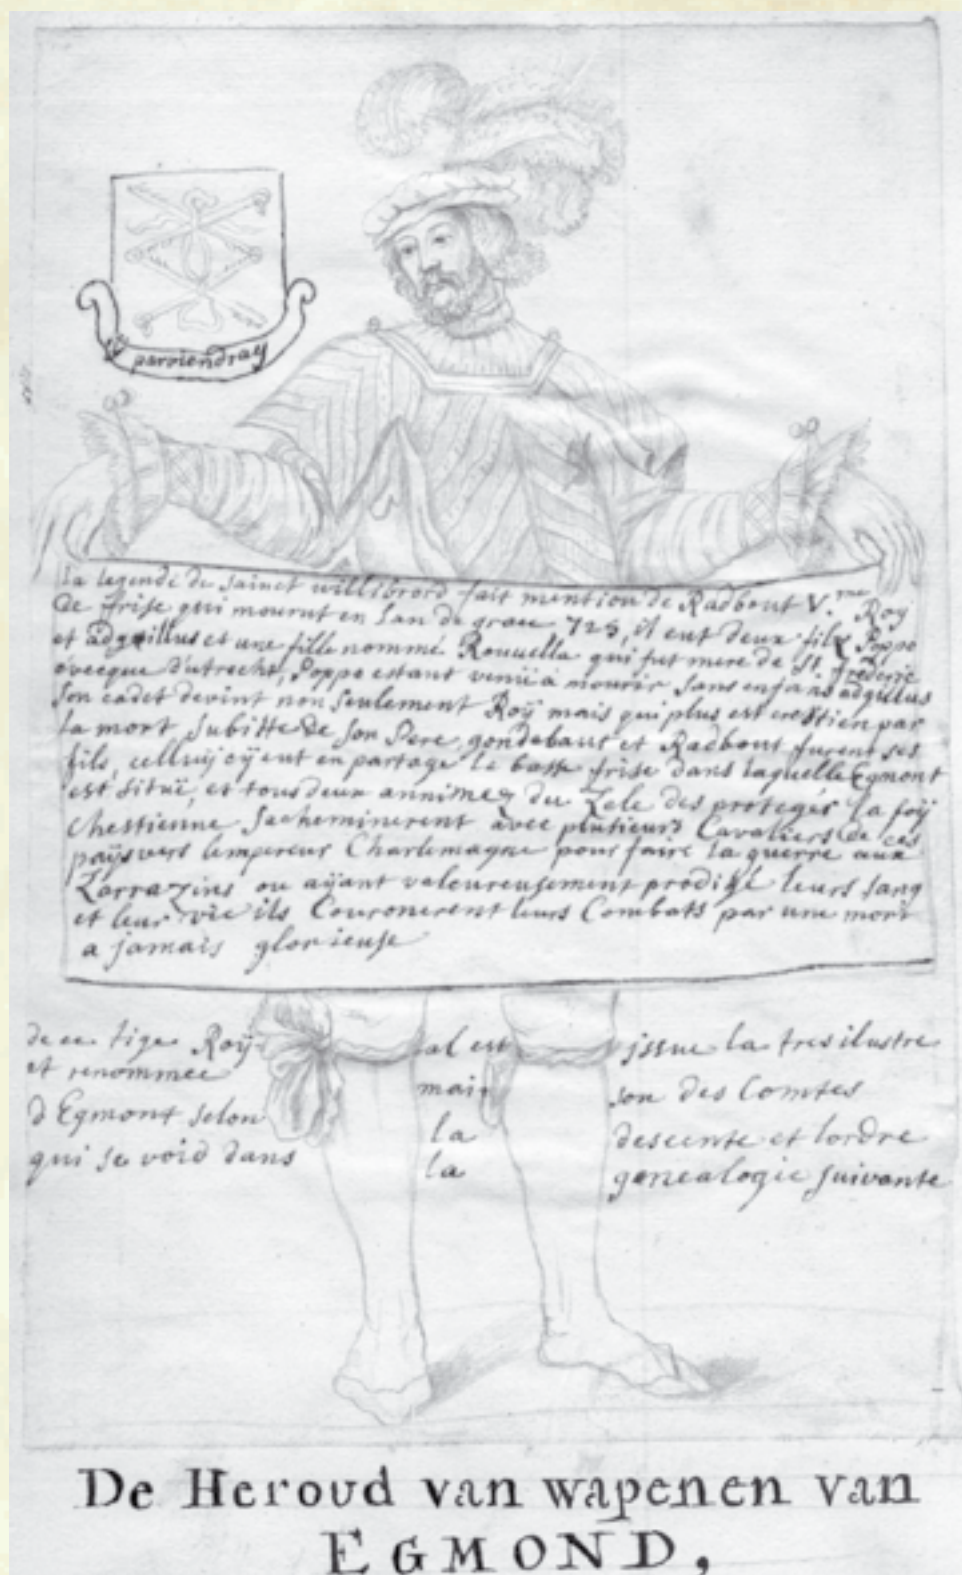 parviendray
La legende de sainct willibrord fait mention de Radbout V.me Roy
de frise qui mourut en Lan de grace 723, il eut deux filx Poppo
et adgillus et une fille nommé Rouuella qui fut mere de St. frederic
evecque d'utrecht, Poppo estant venu a mourir sans enfans adgillus
son cadet devint non seulement Roÿ mais qui plus est crestien par
la mort subitte de son Pere, gondebaut et Radbout furent ses
fils, celluÿ cÿ eut en partage le basse frise dans laquelle Egmont
est situé, et tous deux annimez du Zele des protegér la foÿ
Chestienne sacheminerent avec plusieurs Cavaliers de ces
paÿs vers lempereur Charlemagne pour faire la guerre aux
Zarrazins ou aÿant valeureusement prodigé leurs sang
et leur vie ils Couronerent leurs Combats par une mort
a jamais glorieuse
de ce tige Roÿ al est jssue la tres ilustre
et renommee mai son des Comtes
d Egmont selon la descente et lordre
qui se void dans la genealogie suivante
De Heroud van wapenen van
EGMOND,